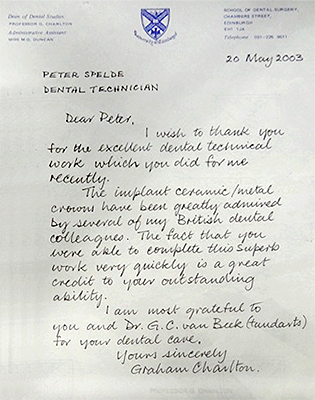 Dean of Dental Studies
PROFESSOR G. CHARLTON
Administrative Assistant
MISS M.G. DUNCAN
SCHOOL OF DENTAL SURGERY,
CHAMBERS STREET,
EDINBURGH
EH1 1JA
20 May 2003
PETER SPELDE
DENTAL TECHNICIAN
Dear Peter,
I wish to thank you
for the excellent dental technical
work which you did for me
recently.
The implant ceramic/metal
crowns have been greatly admired
by several of my British dental
colleagues. The fact that you
were able to complete this superb
work very quickly is a great
credit to your outstanding
ability.
I am most grateful to
you and Dr. G.C. van Beek (tandarts)
for your dental care.
Yours sincerely
Graham Charlton.
PROFESSOR G CHARLTON